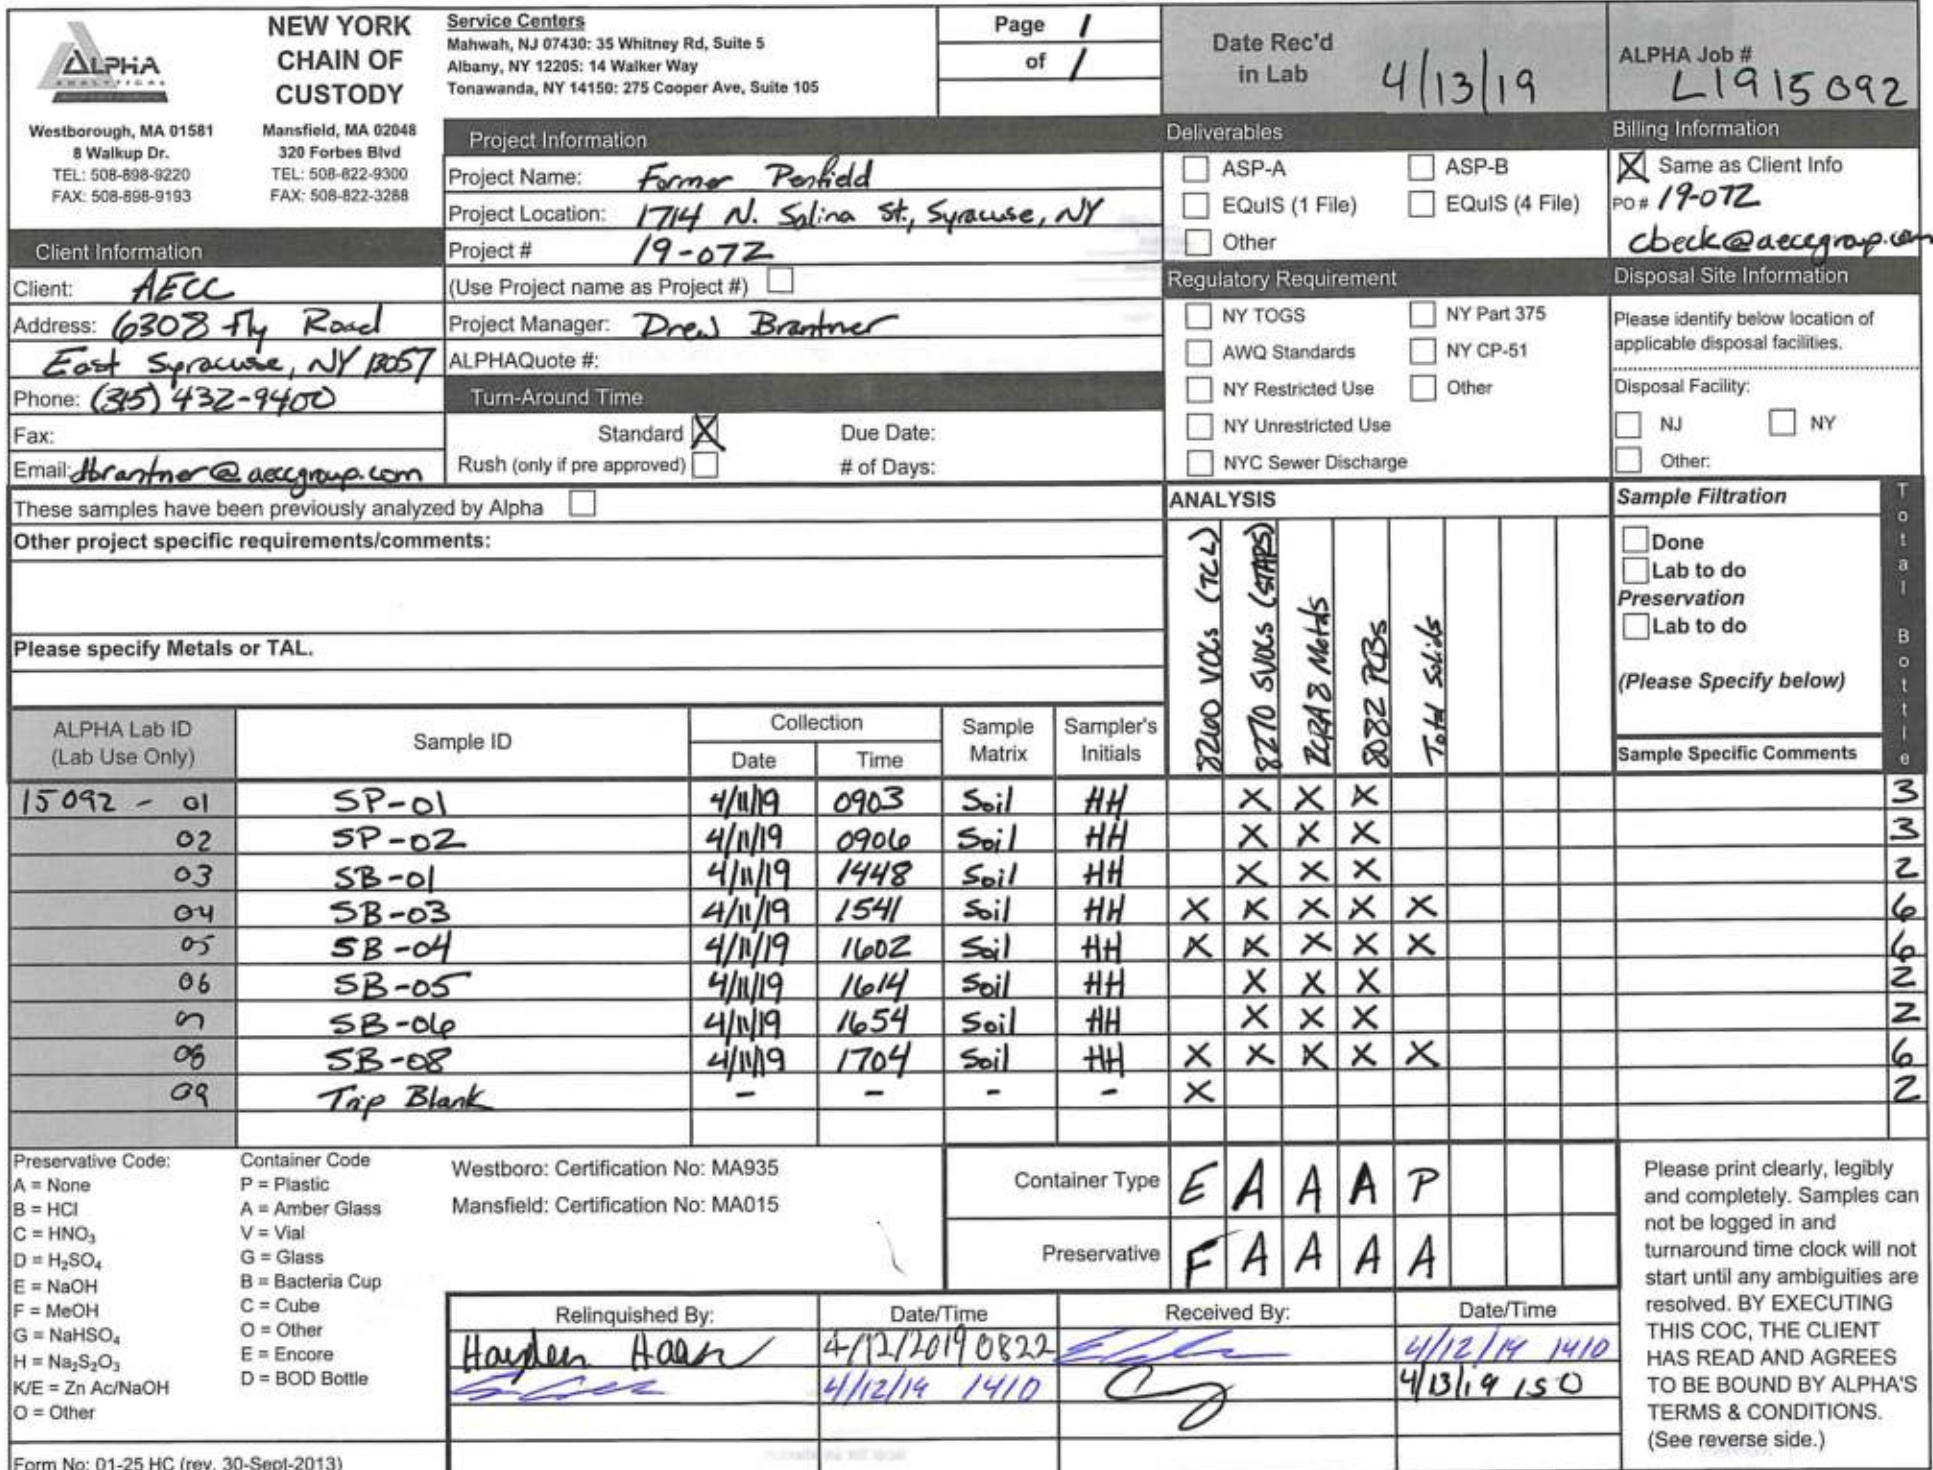 ALPHA
ANALYTICAL
NEW YORK
CHAIN OF
CUSTODY
Westborough, MA 01581
8 Walkup Dr.
TEL: 508-898-9220
FAX: 508-898-9193
Mansfield, MA 02048
320 Forbes Blvd
TEL: 508-822-9300
FAX: 508-822-3288
Service Centers
Mahwah, NJ 07430: 35 Whitney Rd, Suite 5
Albany, NY 12205: 14 Walker Way
Tonawanda, NY 14150: 275 Cooper Ave, Suite 105
Page 1
of 1
Date Rec'd
in Lab 4/13/19
ALPHA Job #
L1915092
Client Information
Client: AECC
Address: 6308 Fly Road
East Syracuse, NY 13057
Phone: (315) 432-9400
Fax:
Email: dbrantner@aeccgroup.com
Project Information
Project Name: Former Penfield
Project Location: 1714 N. Salina St., Syracuse, NY
Project # 19-072
(Use Project name as Project #)
Project Manager: Drew Brantner
ALPHAQuote #:
Turn-Around Time
Standard X Due Date:
Rush (only if pre approved) # of Days:
Deliverables
ASP-A ASP-B
EQuIS (1 File) EQuIS (4 File)
Other
Regulatory Requirement
NY TOGS NY Part 375
AWQ Standards NY CP-51
NY Restricted Use Other
NY Unrestricted Use
NYC Sewer Discharge
Billing Information
X Same as Client Info
PO # 19-072
cbeck@aeccgroup.com
Disposal Site Information
Please identify below location of
applicable disposal facilities.
Disposal Facility:
NJ NY
Other:
These samples have been previously analyzed by Alpha
Other project specific requirements/comments:
Please specify Metals or TAL.
ANALYSIS
8260 VOCs (TCL)
8270 SVOCs (STARS)
RCRA 8 Metals
8082 PCBs
Total Solids
Sample Filtration
Done
Lab to do
Preservation
Lab to do
(Please Specify below)
Total Bottle
ALPHA Lab ID
(Lab Use Only)
Sample ID
Collection
Date Time
Sample
Matrix
Sampler's
Initials
Sample Specific Comments
15092 - 01 SP-01 4/11/19 0903 Soil HH X X X 3
02 SP-02 4/11/19 0906 Soil HH X X X 3
03 SB-01 4/11/19 1448 Soil HH X X X 2
04 SB-03 4/11/19 1541 Soil HH X X X X X 6
05 SB-04 4/11/19 1602 Soil HH X X X X X 6
06 SB-05 4/11/19 1614 Soil HH X X X 2
07 SB-06 4/11/19 1654 Soil HH X X X 2
08 SB-08 4/11/19 1704 Soil HH X X X X X 6
09 Trip Blank - - - - X 2
Preservative Code:
A = None
B = HCl
C = HNO₃
D = H₂SO₄
E = NaOH
F = MeOH
G = NaHSO₄
H = Na₂S₂O₃
K/E = Zn Ac/NaOH
O = Other
Container Code
P = Plastic
A = Amber Glass
V = Vial
G = Glass
B = Bacteria Cup
C = Cube
O = Other
E = Encore
D = BOD Bottle
Westboro: Certification No: MA935
Mansfield: Certification No: MA015
Container Type E A A A P
Preservative F A A A A
Relinquished By: Date/Time Received By: Date/Time
Hayden 4/12/2019 0822 4/12/19 1410
4/12/19 1410 4/13/19
Please print clearly, legibly
and completely. Samples can
not be logged in and
turnaround time clock will not
start until any ambiguities are
resolved. BY EXECUTING
THIS COC, THE CLIENT
HAS READ AND AGREES
TO BE BOUND BY ALPHA'S
TERMS & CONDITIONS.
(See reverse side.)
Form No: 01-25 HC (rev. 30-Sept-2013)